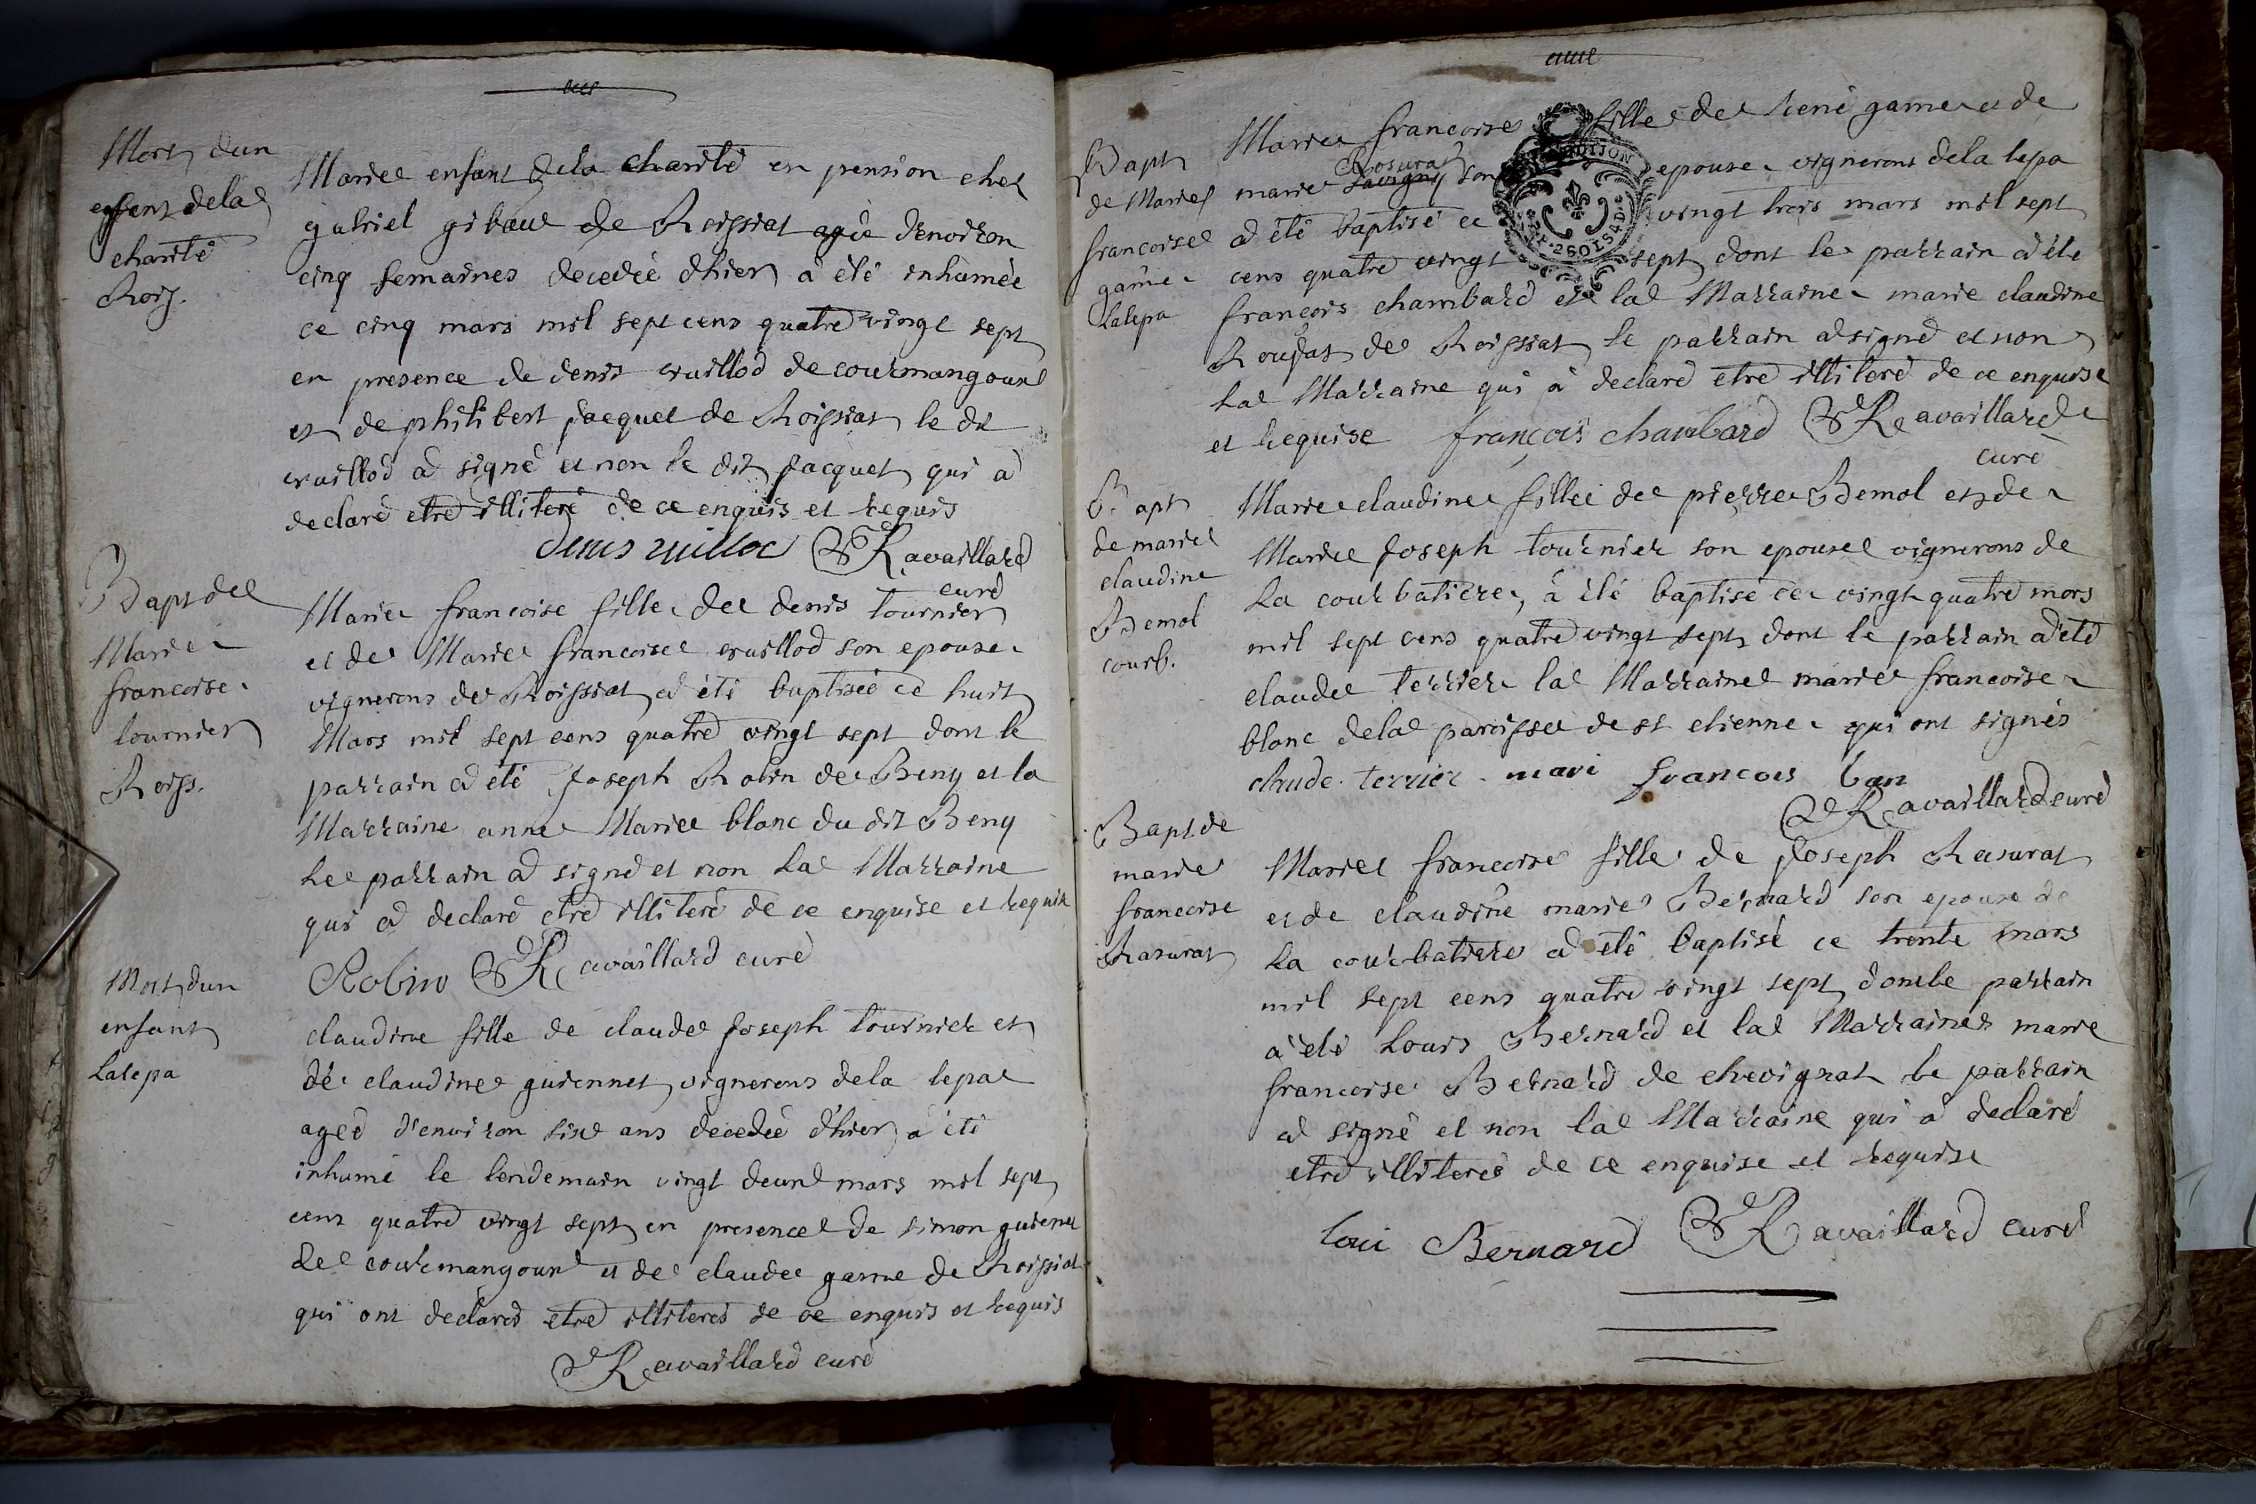 Mort dun
enfent dela
charité
Roiss.
Mariee enfant dela charité en pension chez
gabriel gibaux de Roissiat agée d'environ
cinq semaines decedéé d'hier à été inhumée
ce cinq mars mil sept cens quatre vingt sept
en presence de denis vuillod de courmangoux
et de philibert jacquet de Roissiat le dit
vuillod a signé et non le dit jacquet qui a
declaré etre illiteré de ce enquis et requis
denis vuilloc Ravaillard
curé
Bapt de
Marie
francoise
tournier
Roiss.
Marie francoise fille de denis tournier
et de Marie francoise vuillod son epouse
vignerons de Roissiat a été baptisée ce huit
Mars mil sept cens quatre vingt sept dont le
parrain a été Joseph Robin de Beny et la
Marraine anne Marie blanc du dit Beny
Le parrain a signé et non La Marraine
qui a declaré etre illiteré de ce enquise et requise
Robin Ravaillard curé
Mort dun
enfant
Lalepa
claudine fille de claude Joseph tournier et
de claudine guiennet vignerons dela lepa
ageé d'environ sixe ans decedéé d'hier a été
inhumé le lendemain vingt deux mars mil sept
cens quatre vingt sept en presence de simon guienet
de courmangoux et de claude game de Roissiat
qui ont declarés etre illiterés de ce enquis et requis
Ravaillard curé
Bapt
de Marie
francoise
game
Lalepa
Marie francoise fille de René game et de
Rosurat
marie son epouse vignerons dela lepa
a été baptisé ce vingt trois mars mil sept
cens quatre vingt sept dont le parrain a été
francois chambard et la Marraine marie claudine
de Roissiat le parrain a signé et non
La Marraine qui a declaré etre illiteré de ce enquise
et requise françois chambard Ravaillard
curé
Bapt
de marie
claudine
Bemol
courb.
Marie claudine fille de pierre Bemol et de
Marie Joseph tournier son epouse vignerons de
La courbatiere, à été baptisé ce vingt quatre mars
mil sept cens quatre vingt sept dont le parrain a été
claude terrier la Marraine marie francoise
blanc dela paroisse de st etienne qui ont signés
claude terrier mari francois ban
Ravaillard curé
Bapt de
marie
francoise
Rasurat
Marie francoise fille de Joseph Rasurat
et de claudine marie Bernard son epouse de
La courbatiere a été baptisé ce trente mars
mil sept cens quatre vingt sept dont le parrain
à été Louis Bernard et la Marraine marie
francoise Bernard de chevignat le parrain
a signé et non la Marraine qui a declaré
etre illiterée de ce enquise et requise
loui Bernard Ravaillard curé